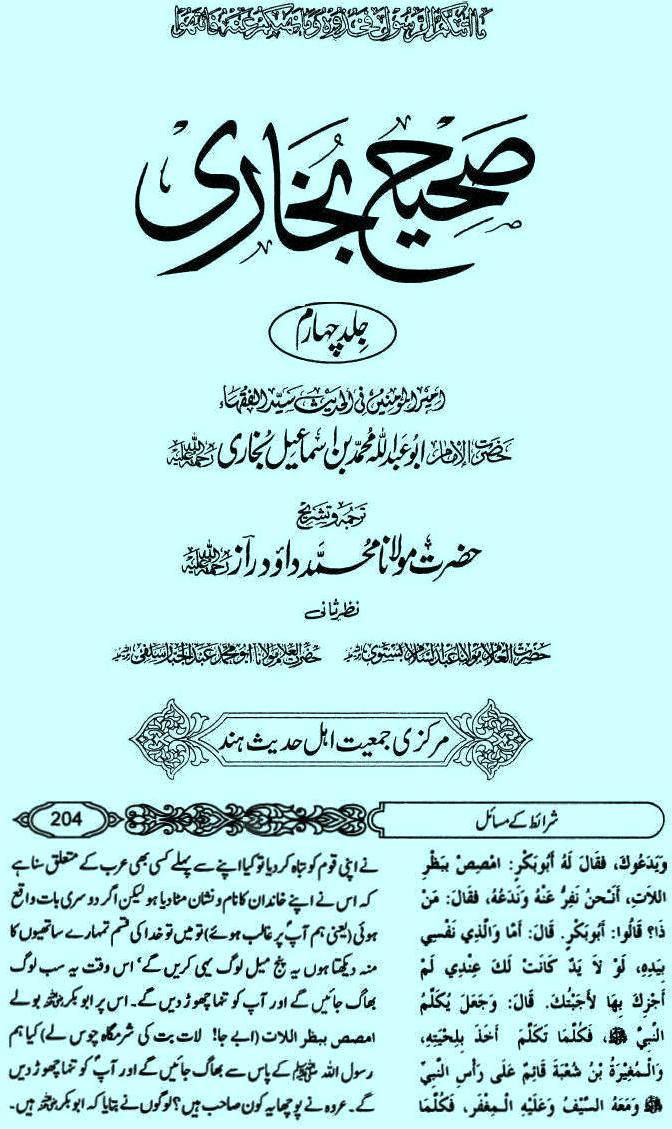 مَا آتٰکُمُ الرَّسُوْلُ فَخُذُوْهُ وَمَا نَهٰکُمْ عَنْهُ فَانْتَهُوْا
صحیح بخاری
جلد چہارم
امیر المؤمنین فی الحدیث سید الفقہاء
حضرت الامام ابو عبداللہ محمد بن اسماعیل بخاری رحمۃ اللہ علیہ
ترجمہ و تشریح
حضرت مولانا محمد داؤد راز رحمۃ اللہ علیہ
نظر ثانی
حضرت العلام مولانا عبدالسلام بستوی
حضرت العلام مولانا ابو محمد عبدالجبار سلفی
مرکزی جمعیت اہل حدیث ہند
شرائط کے مسائل
204
وَيَدْعُوكَ، فَقَالَ لَهُ أَبُوبَكْرٍ: امْصِصْ بِبَظْرِ
اللاَتِ، أَنَحْنُ نَفِرُّ عَنْهُ وَنَدَعُهُ، فَقَالَ: مَنْ
ذَا؟ قَالُوا: أَبُوبَكْرٍ. قَالَ: أَمَا وَالَّذِي نَفْسِي
بِيَدِهِ، لَوْ لاَ يَدٌ كَانَتْ لَكَ عِنْدِي لَمْ
أَجْزِكَ بِهَا لأَجَبْتُكَ. قَالَ: وَجَعَلَ يُكَلِّمُ
النَّبِيَّ ﷺ، فَكُلَّمَا تَكَلَّمَ أَخَذَ بِلِحْيَتِهِ،
وَالْمُغِيْرَةُ بْنُ شُعْبَةَ قَائِمٌ عَلَى رَأْسِ النَّبِيِّ
ﷺ وَمَعَهُ السَّيْفُ وَعَلَيْهِ الْمِغْفَرُ، فَكُلَّمَا
نے اپنی قوم کو تباہ کردیا تو کیا اپنے سے پہلے کسی بھی عرب کے متعلق سنا ہے
کہ اس نے اپنے خاندان کا نام و نشان مٹا دیا ہو لیکن اگر دوسری بات واقع
ہوئی (یعنی ہم آپؐ پر غالب ہوئے) تو میں تو خدا کی قسم تمہارے ساتھیوں کا
منہ دیکھتا ہوں یہ پنج میل لوگ یہی کریں گے' اس وقت یہ سب لوگ
بھاگ جائیں گے اور آپ کو تنہا چھوڑ دیں گے۔ اس پر ابوبکر رضی اللہ عنہ بولے
امصص ببظر اللات (ابے جا! لات بت کی شرمگاہ چوس لے) کیا ہم
رسول اللہ ﷺ کے پاس سے بھاگ جائیں گے اور آپؐ کو تنہا چھوڑ دیں
گے۔ عروہ نے پوچھا یہ کون صاحب ہیں؟ لوگوں نے بتایا کہ ابوبکر رضی اللہ عنہ ہیں۔